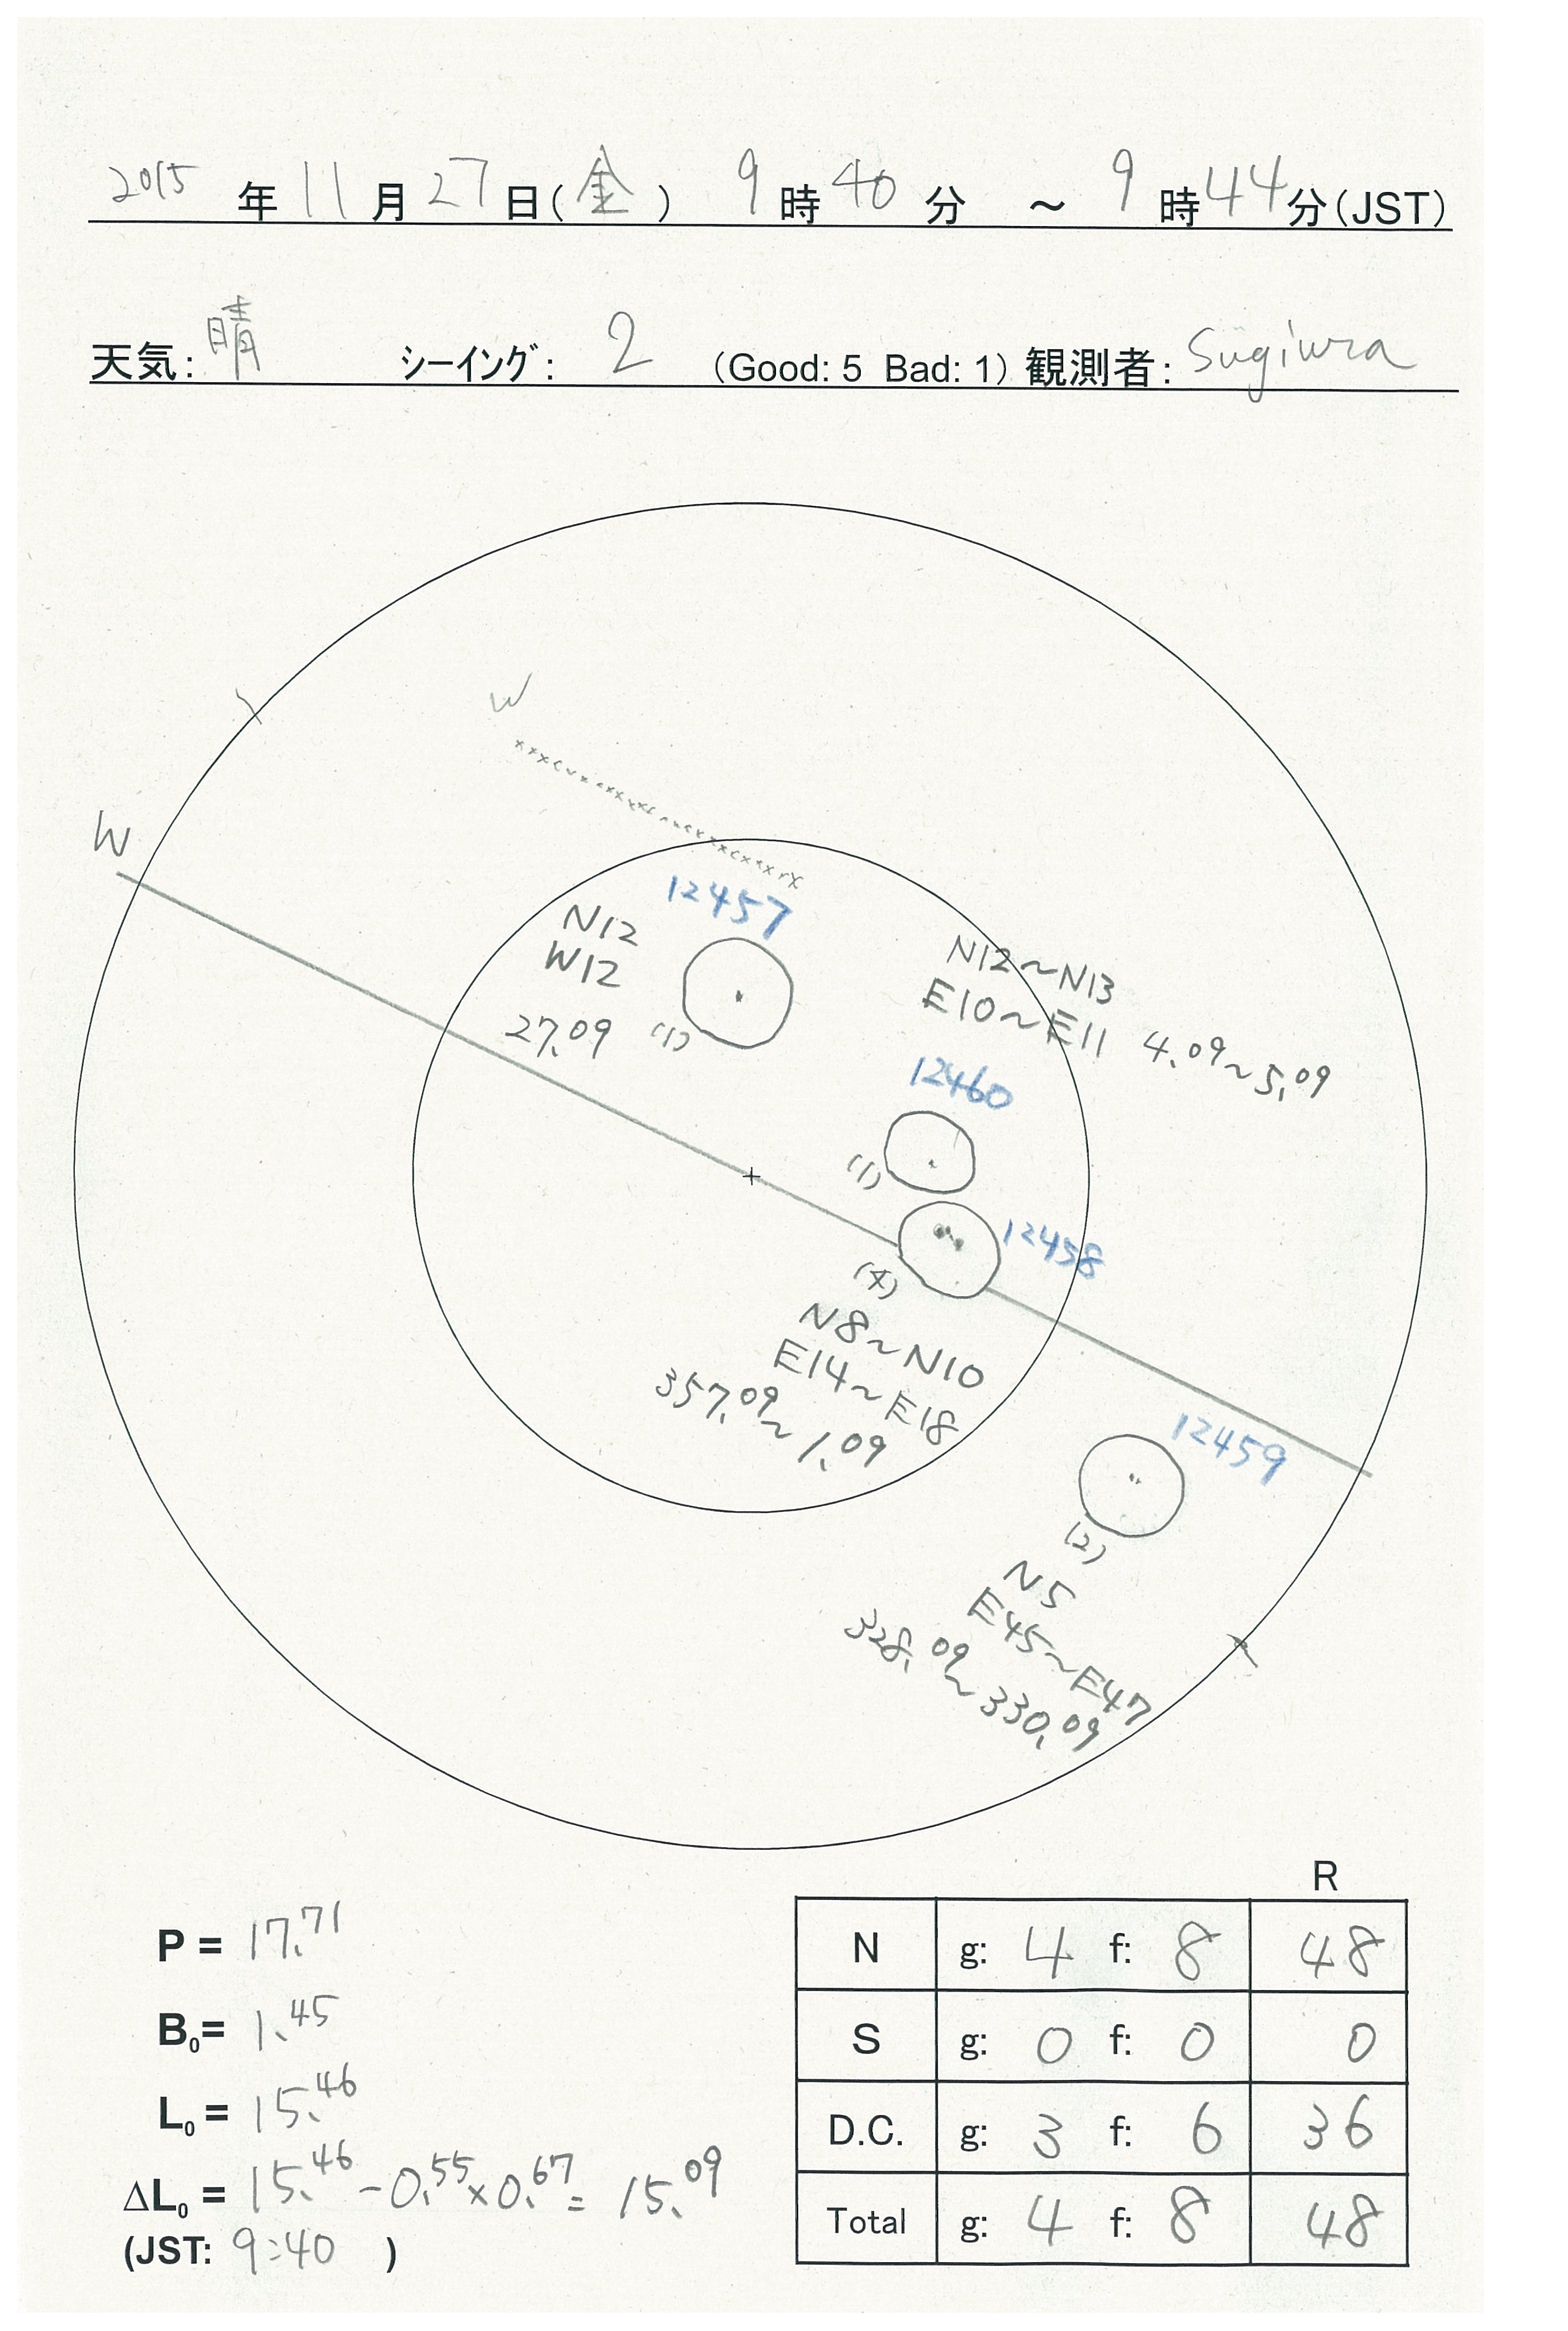 2015 年 11 月 27 日(金) 9 時 40 分 ～ 9 時 44 分(JST)
天気: 晴 シーイング: 2 (Good: 5 Bad: 1) 観測者: Sugiura
W
W
12457
N12
W12
27.09 (1)
N12~N13
E10~E11 4.09~5.09
12460
(1)
12458
(4)
N8~N10
E14~E18
357.09~1.09
12459
(2)
N5
E45~E47
328.09~330.09
P = 17.71
B0= 1.45
L0 = 15.46
ΔL0 = 15.46 - 0.55 × 0.67 = 15.09
(JST: 9:40 )
R
N g: 4 f: 8 48
S g: 0 f: 0 0
D.C. g: 3 f: 6 36
Total g: 4 f: 8 48